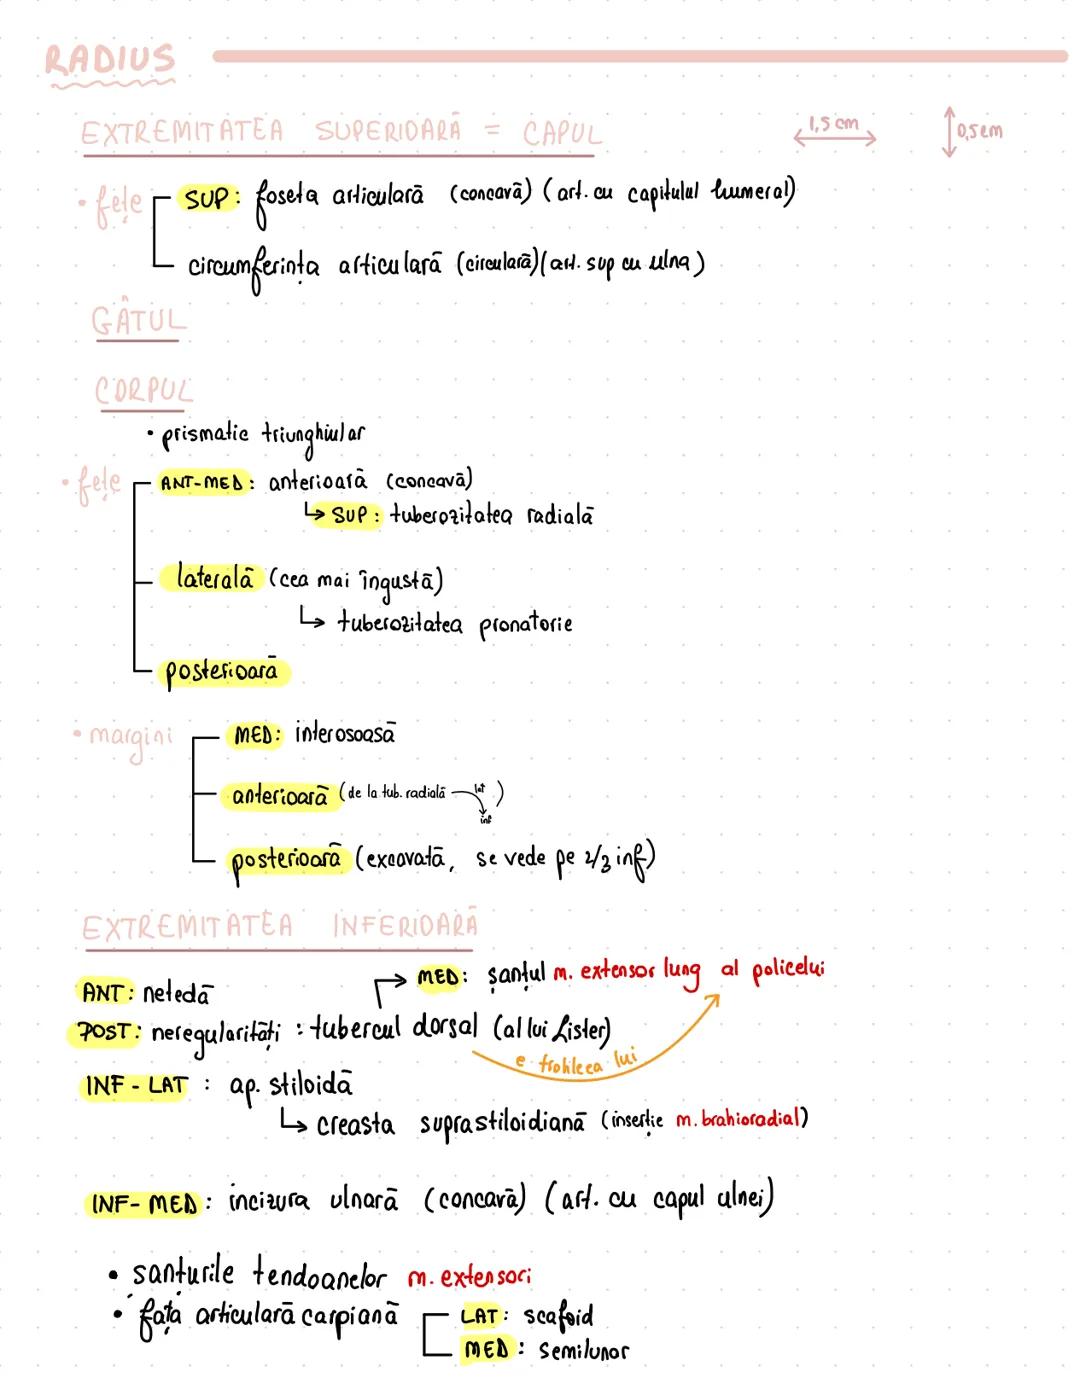 RADIUS
EXTREMITATEA SUPERIOARĂ = CAPUL
1,5 cm
0,5 cm
• fețe
SUP: foseta articulară (concavă) (art. cu capitulul humeral)
circumferința articulară (circulară) (art. sup cu ulna)
GÂTUL
CORPUL
• prismatic triunghiular
• fețe
ANT-MED: anterioară (concavă)
↳ SUP: tuberozitatea radială
laterală (cea mai îngustă)
↳ tuberozitatea pronatorie
posterioară
• margini
MED: interosoasă
anterioară (de la tub. radială lat inf)
posterioară (excavată, se vede pe 2/3 inf)
EXTREMITATEA INFERIOARĂ
MED: șanțul m. extensor lung al policelui
ANT: netedă
POST: neregularități: tubercul dorsal (al lui Lister)
e trohleea lui
INF - LAT : ap. stiloidă
↳ creasta suprastiloidiană (inserție m. brahioradial)
INF- MED: incizura ulnară (concavă) (art. cu capul ulnei)
• șanțurile tendoanelor m. extensori
• fața articulară carpiană
LAT: scafoid
MED: semilunar